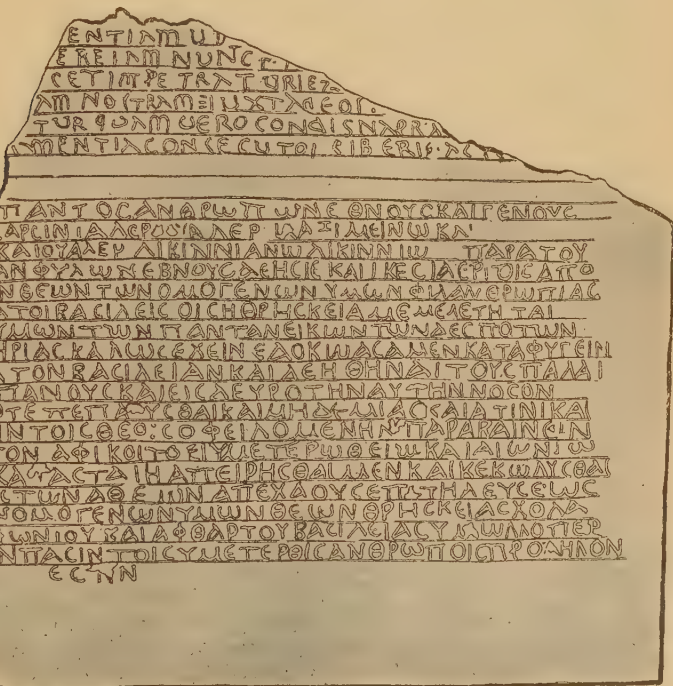 ENTIAMU
EREIAMNUNC
CETIMPETRATURIEZ
AMNOSTRAMΞIUXTADEOR
TURQUAMUEROCONDISNARRA
AMENTIACONSECUTOILIBERIS·AC
ΠΑΝΤΟCΑΝΘΡΩΠΩΝΕΘΝΟΥCΚΑΙΓΕΝΟΥC
ΑΡΕΙΝΙΑΛΕΡΟΟΥΑΛΕΡ·ΜΑΞΙΜΕΙΝΩΚΑΙ
ΚΑΙΟΥΑΛΕΡΛΙΚΙΝΝΙΑΝΩΛΙΚΙΝΝΙΩ ΠΑΡΑΤΟΥ
ΑΝΦΥΛΩΝΕΒΝΟΥCΔΕΗCΙCΚΑΙΙΚΕCΙΑΕΡΓΟΙCΑΠΟ
ΝΘΕΩΝΤΩΝΟΜΟΓΕΝΩΝΥΜΩΝΦΙΛΑΝΕΡΩΠΙΑC
ΑΤΟΙΒΑCΙΛΕΙCΟΙCΗΘΡΗCΚΕΙΑΜΕΜΕΛΕΤΗΤΑΙ
ΥΜΩΝΤΩΝΠΑΝΤΑΝΕΙΚΩΝΤΩΝΔΕCΠΟΤΩΝ
ΗΡΙΑCΚΑΛΩCΕΧΕΙΝΕΔΟΚΙΜΑCΑΜΕΝΚΑΤΑΦΥΓΕΙΝ
ΤΟΝΒΑCΙΛΕΙΑΝΚΑΙΔΕΗΘΗΝΑΙΤΟΥCΠΑΛΑΙ
ΠΑΝΟΥCΚΑΙΕΙCΔΕΥΡΟΤΗΝΑΥΤΗΝΝΟCΟΝ
ΟΤΕΠΕΠΑΥCΘΑΙΚΑΙΜΗΔΕΜΙΑCΚΑΙΑΤΙΝΙΚΑΙ
ΙΝΤΟΙCΘΕΟ:CΟΦΕΙΛΟΜΕΝΗΝΠΑΡΑΒΑΙΝΕΙΝ
ΤΟΝΑΦΙΚΟΙΤΟΕΙΥΜΕΤΕΡΩΘΕΙΩΚΑΙΑΙΩΝΙΩ
ΚΑΤΑCΤΑΙΗΑΠΕΙΡΗCΘΑΙΜΕΝΚΑΙΚΕΚΩΛΥCΘΑΙ
CΤΩΝΑΘΕΩΝΑΠΕΧΘΟΥCΕΠΙΤΗΔΕΥCΕΩC
ΝΟΜΟΓΕΝΩΝΥΜΩΝΘΕΩΝΘΡΗCΚΕΙΑCΧΟΛΑ
ΡΩΝΙΟΥΚΑΙΑΦΘΑΡΤΟΥΒΑCΙΛΕΙΑCΥΜΩΝΟΠΕΡ
ΝΠΑCΙΝΤΟΙCΥΜΕΤΕΡΟΙCΑΝΘΡΩΠΟΙCΠΡΟΔΗΛΟΝ
ΕCΤΙΝ